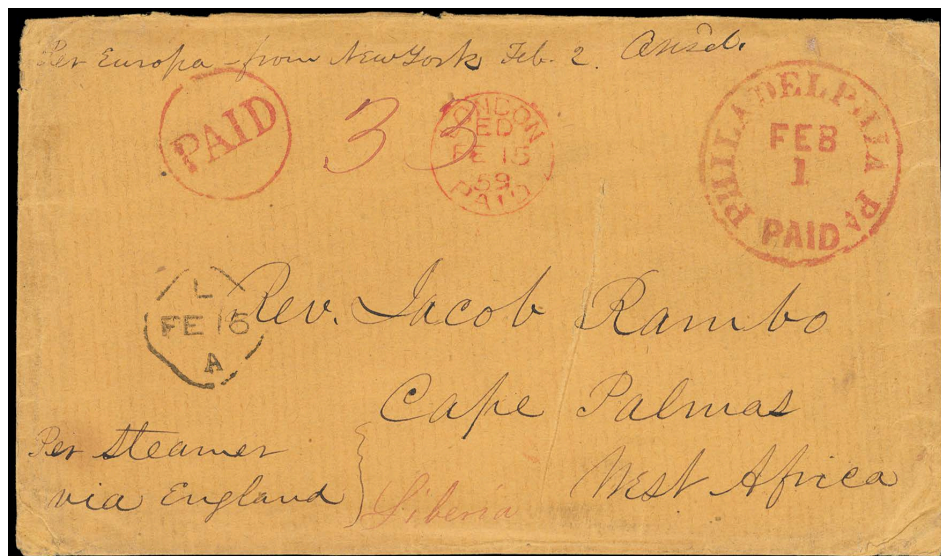 Per Europa - from New York Feb. 2. Ansd.
PAID
33
LONDON
ED
FE 15
59
PAID
PHILADELPHIA PA
FEB
1
PAID
L
FE 16
A
Rev. Jacob Rambo
Cape Palmas
West Africa
Per Steamer
via England
Liberia